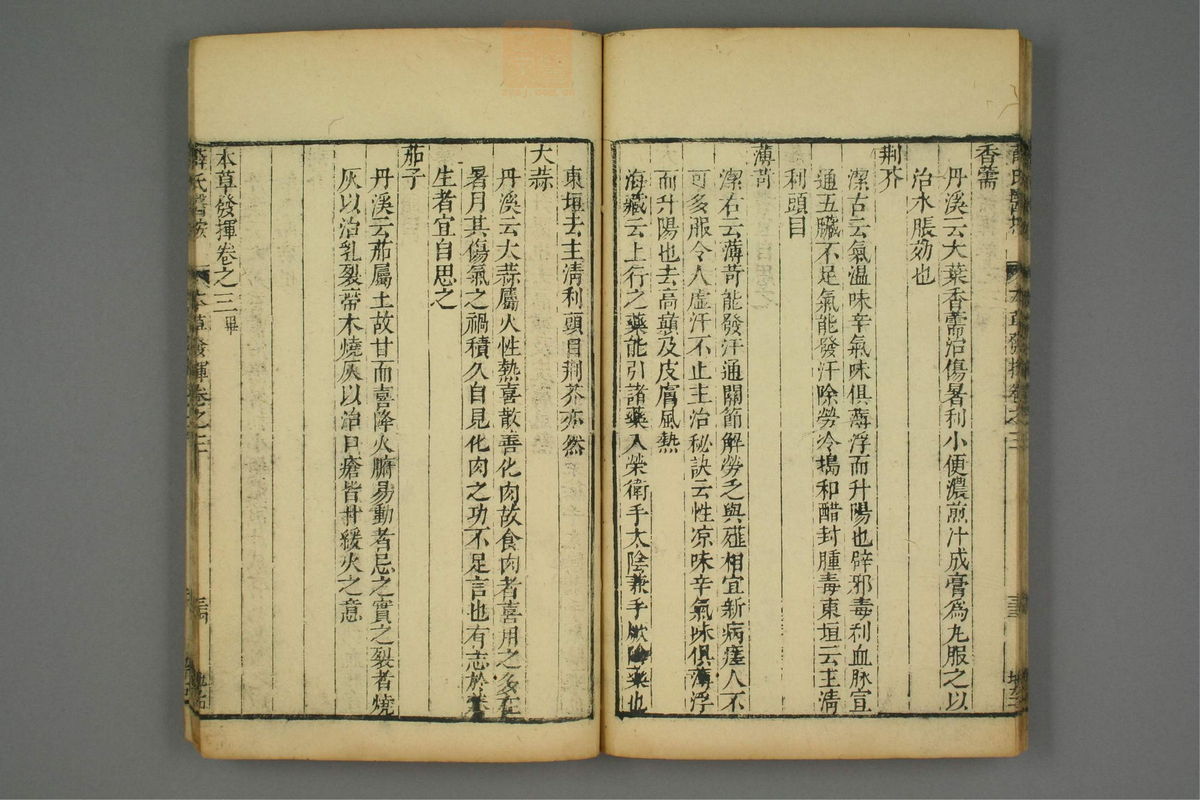 香薷
丹溪云大葉香薷治傷暑利小便濃煎汁成膏爲丸服之以
治水脹効也
荆芥
潔古云氣温味辛氣味俱薄浮而升陽也辟邪毒利血脉宣
通五臟不足氣能發汗除勞冷搗和醋封腫毒東垣云主清
利頭目
薄苛
潔右云薄苛能發汗通關節解勞乏與薤相宜新病瘥人不
可多服令人虚汗不止主治秘訣云性凉味辛氣味俱薄浮
而升陽也去高巔及皮膚風熱
海藏云上行之藥能引諸藥入榮衛手太陰兼手厥陰藥也
東垣去主清利頭目荆芥亦然
大蒜
丹溪云大蒜屬火性熱喜散善化肉故食肉者喜用之多在
暑月其傷氣之禍積久自見化肉之功不足言也有志於
生者宜自思之
茄子
丹溪云茄屬土故甘而喜降火腑易動者忌之實之裂者燒
灰以治乳裂蒂木燒灰以治口瘡皆甘緩火之意
本草發揮卷之三畢
薛氏醫按 本草發揮卷之三